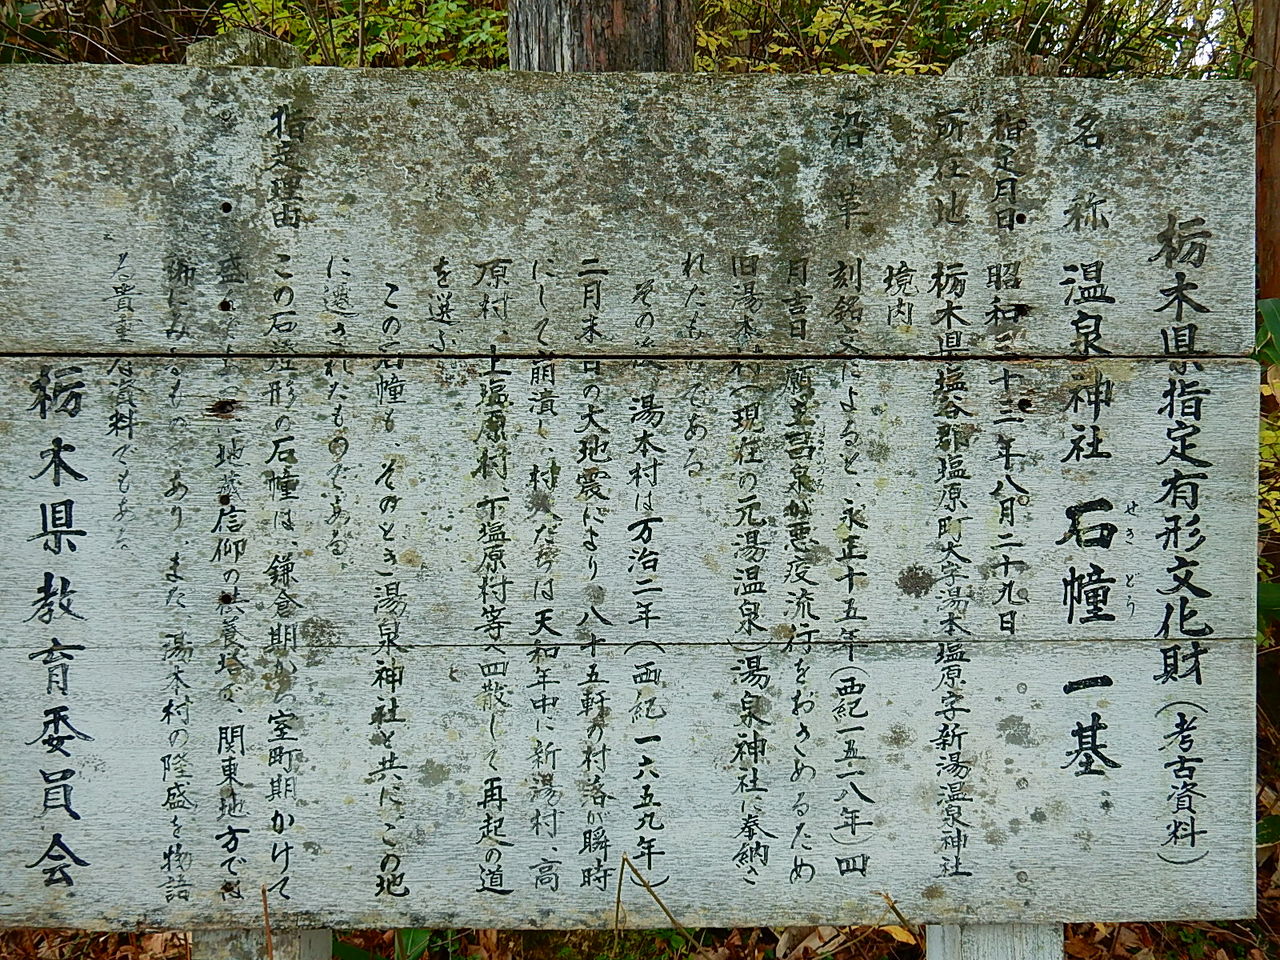 栃木県指定有形文化財(考古資料)
名称 温泉神社 石幢 一基
せき どう
指定月日 昭和三十二年八月二十九日
所在地 栃木県塩谷郡塩原町大字湯本塩原字新湯温泉神社
境内
沿革 刻銘文によると、永正十五年(西紀一五一八年)四
月吉日 願主昌泉が悪疫流行をおさめるため
旧湯本村(現在の元湯温泉)湯泉神社に奉納さ
れたものである
その後 湯本村は万治二年(西紀一六五九年)
二月末日の大地震により 八十五軒の村落が瞬時
にして崩潰し、村人たちは天和年中に新湯村、高
原村、上塩原村 下塩原村等へ四散して再起の道
を選ぶ
この石幢も、そのとき湯泉神社と共に、この地
に遷されたものである
指定理由 この石燈形の石幢は、鎌倉期から室町期かけて
盛んだった地蔵信仰の供養塔で、関東地方では
稀にみるものであり、また、湯本村の隆盛を物語
る貴重な資料でもある。
栃木県教育委員会